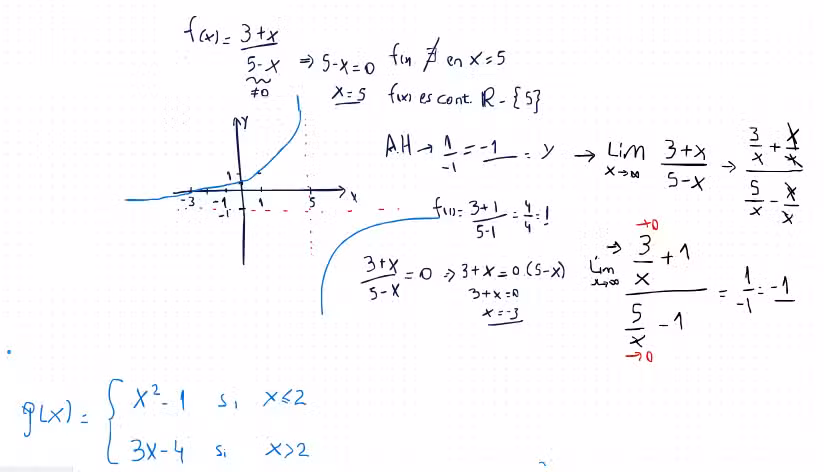 f(x) = (3+x)/(5-x) ⇒ 5-x=0 f(x) ∄ en x=5
≠0 x=5 f(x) es cont. R - {5}
A.H → 1/-1 = -1 = y → Lim x→∞ (3+x)/(5-x) → (3/x + x/x)/(5/x - x/x)
f(1) = (3+1)/(5-1) = 4/4 = 1
(3+x)/(5-x) = 0 ⇒ 3+x=0.(5-x)
3+x=0
x=-3
⇒ Lim x→∞ (3/x + 1)/(5/x - 1) = 1/-1 = -1
→0
→0
y
1
-3 -1 1 5 x
-1
g(x) = { x² - 1 si x ≤ 2
3x - 4 si x > 2